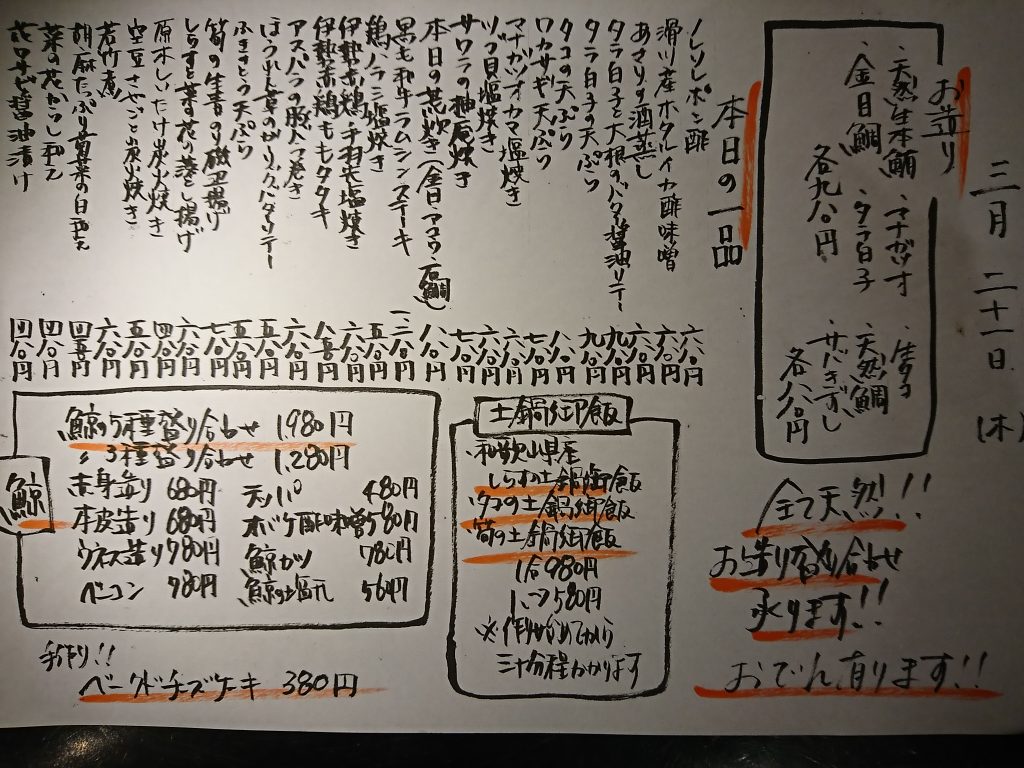 三月二十一日(木)
お造り
・天然生本鮪
・マナガツオ
・金目鯛
・タラ白子
各九八〇円
・生タコ
・天然鯛
・サバきずし
各八八〇円
全て天然!!
お造り盛り合わせ
承ります!!
おでん有ります!!
本日の一品
ノレソレポン酢 六八〇円
滑川産ホタルイカ酢味噌 六八〇円
あさりの酒蒸し
タラ白子と大根のバター醤油ソテー 九八〇円
タラ白子の天ぷら 九八〇円
タコの天ぷら
ワカサギ天ぷら
マナガツオカマ塩焼き
ツブ貝塩焼き
サワラの柚庵焼き 七八〇円
本日の荒炊き(金目、アコウ、石鯛) 八八〇円
黒毛和牛ラムシンステーキ
鶏ハラミ塩焼き 五八〇円
伊勢赤鶏手羽先塩焼き 六八〇円
伊勢赤鶏ももタタキ
アスパラの豚バラ巻き 六八〇円
ほうれん草のガーリックバターソテー 五八〇円
ふきのとう天ぷら 五八〇円
筍の生青のり磯辺揚げ 七八〇円
しらすと菜の花の落とし揚げ 六八〇円
原木しいたけ炭火焼き 四八〇円
空豆さやごと炭火焼き 五八〇円
若竹煮 六八〇円
胡麻たっぷり春菊の白和え
菜の花からし和え 四八〇円
花ワサビ醤油漬け 四八〇円
土鍋御飯
・和歌山県産
しらすの土鍋御飯
・タコの土鍋御飯
・筍の土鍋御飯
1合980円
※作りはじめてから
三十分程かかります
鯨
鯨の5種盛り合わせ 1,980円
〃 3種盛り合わせ 1,280円
赤身造り 680円
本皮造り 680円
ウネス造り 980円
ベーコン 980円
テッパ 480円
オバケ酢味噌 580円
鯨カツ 780円
鯨の塩元 580円
手作り!!
ベークドチーズケーキ 380円